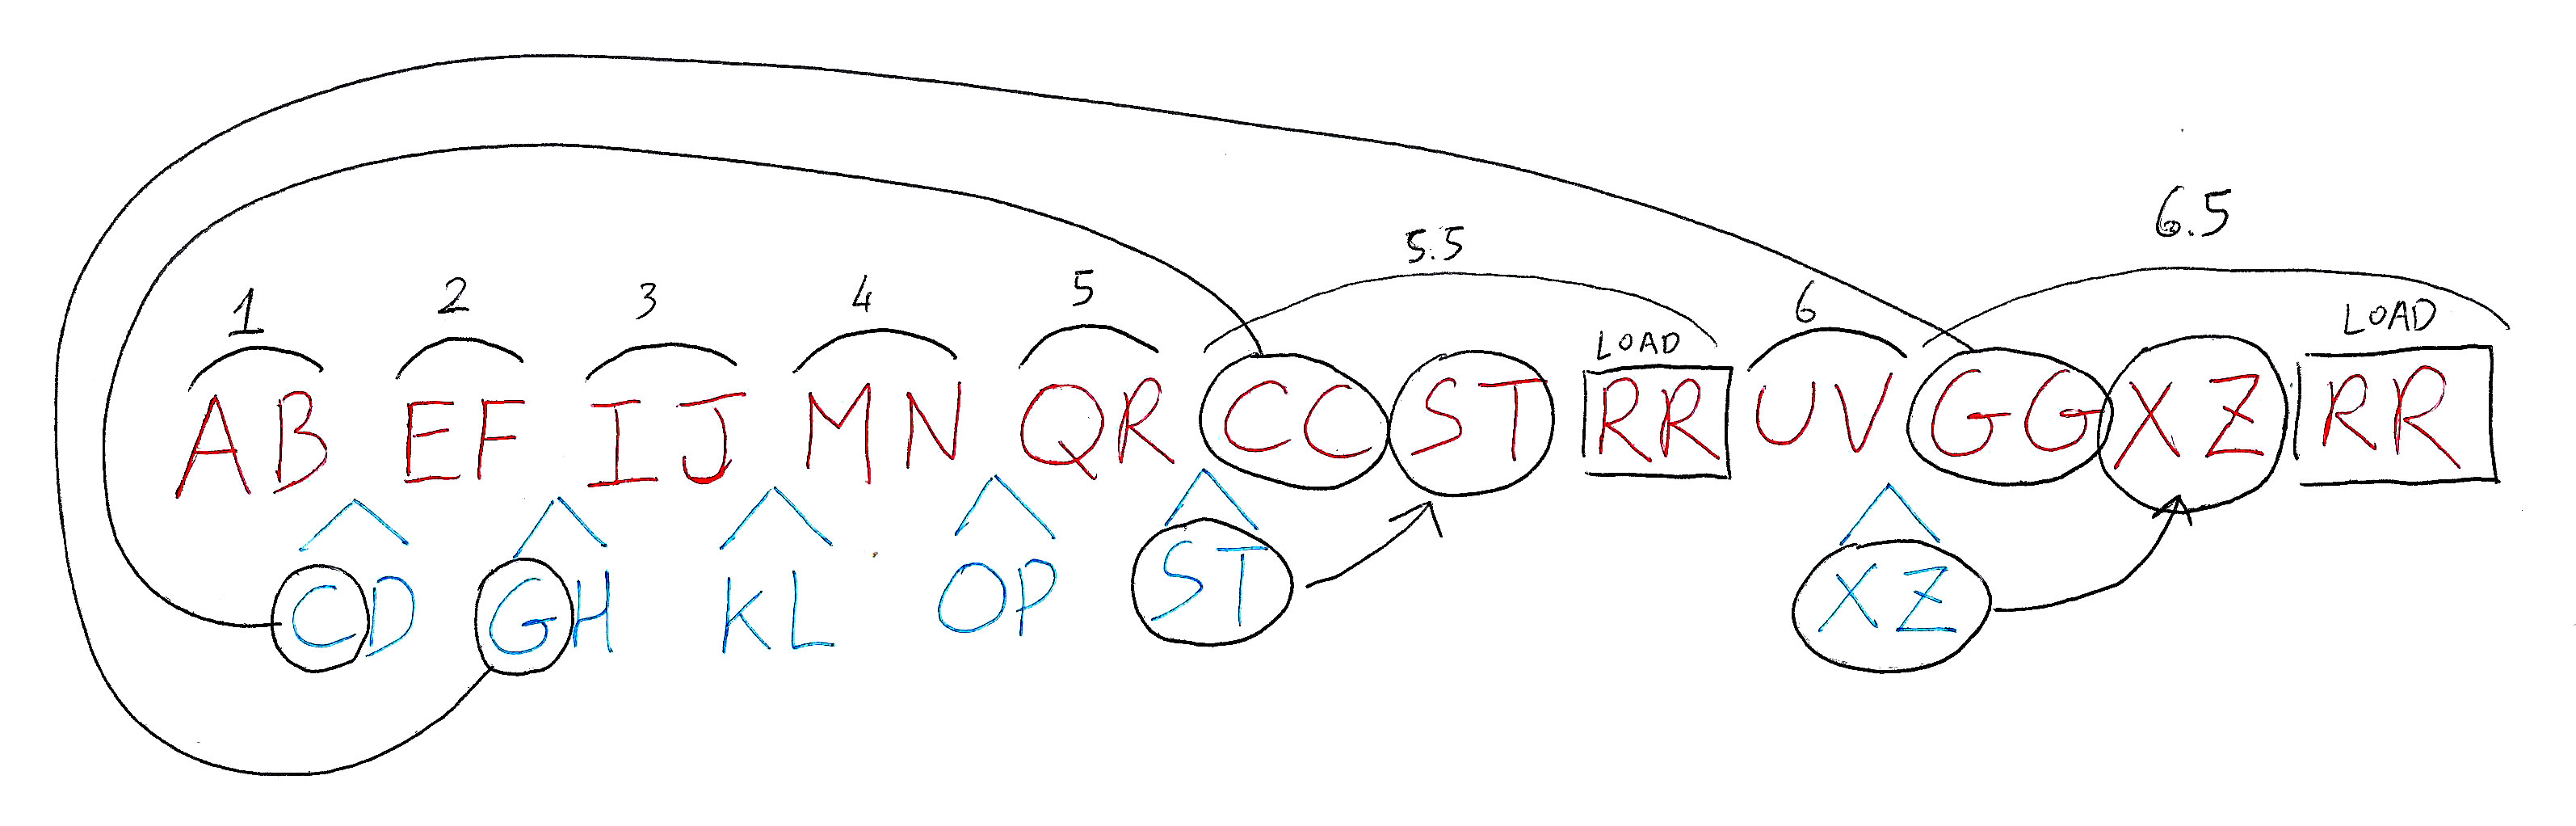 6.5
5.5
1 2 3 4 5 6
LOAD LOAD
AB EF IJ MN QR CC ST RR UV GG XZ RR
CD GH KL OP ST XZ